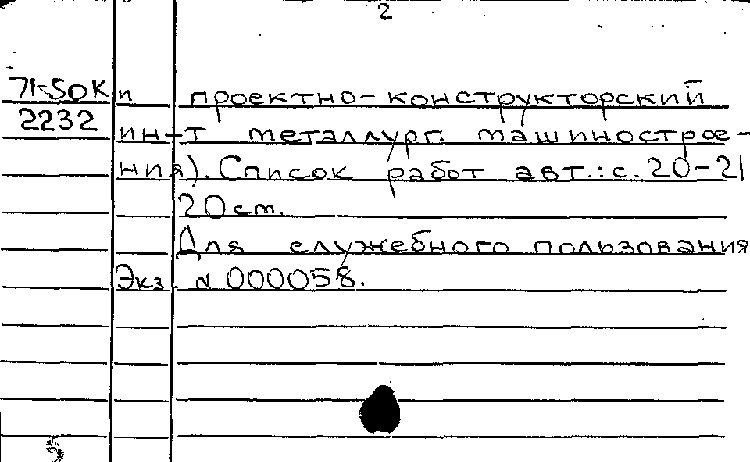 2
71-50К и проектно-конструкторский
2232 ин-т металлург. машинострое-
ния). Список работ авт.: с. 20-21
20 см.
Для служебного пользования
Экз. N 000058.